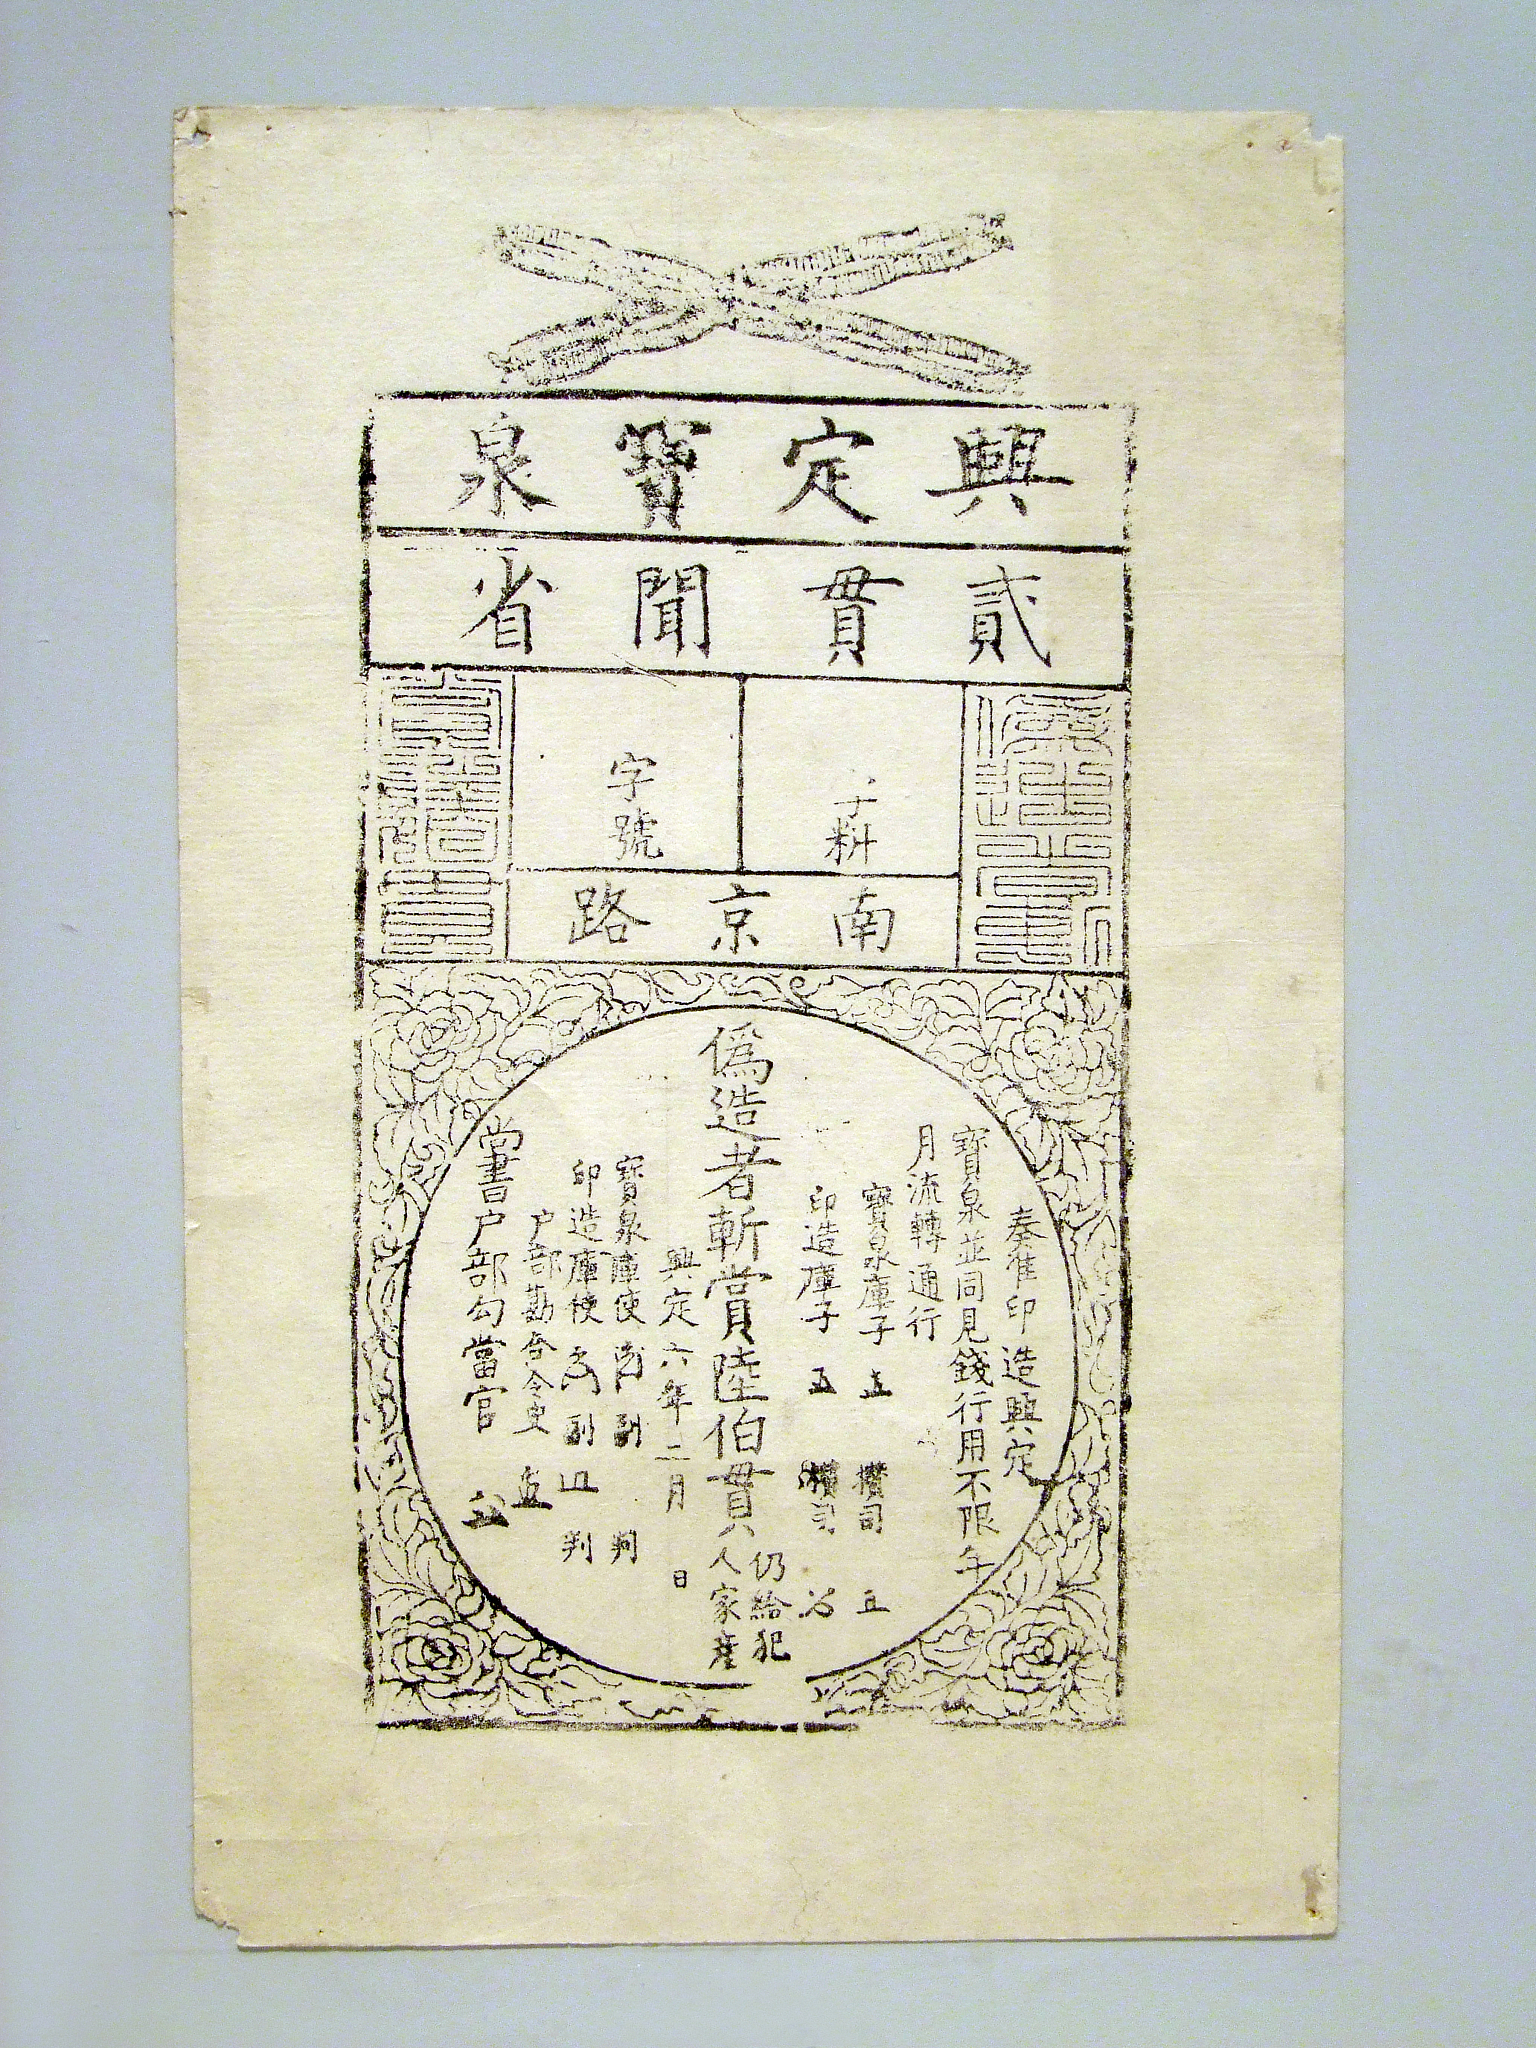 興定寶泉
貳貫聞省
字料
字號
南京路
偽造者斬
賞陸伯貫
奏准印造興定
寶泉並同見錢行用不限年
月流轉通行
寶泉庫子 攢司
印造庫子 攢司
偽造者斬賞陸伯貫
仍給犯
人家產
興定六年二月 日
寶泉庫使 副 判
印造庫使 副 判
户部勘合令史
尚書户部勾當官